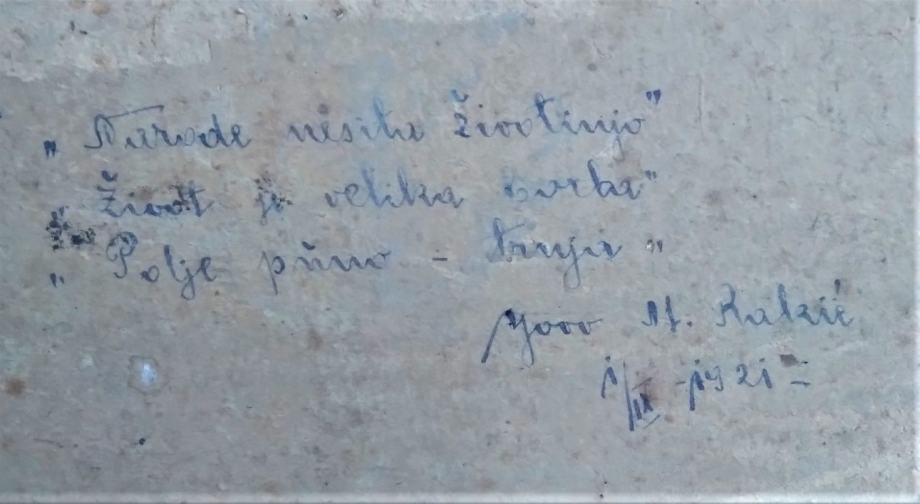 „ Narode nesita životinjo"
„ Život je velika borba"
„ Polje puno - trnja „
Jovo M. Rakić
1/IX -1921-